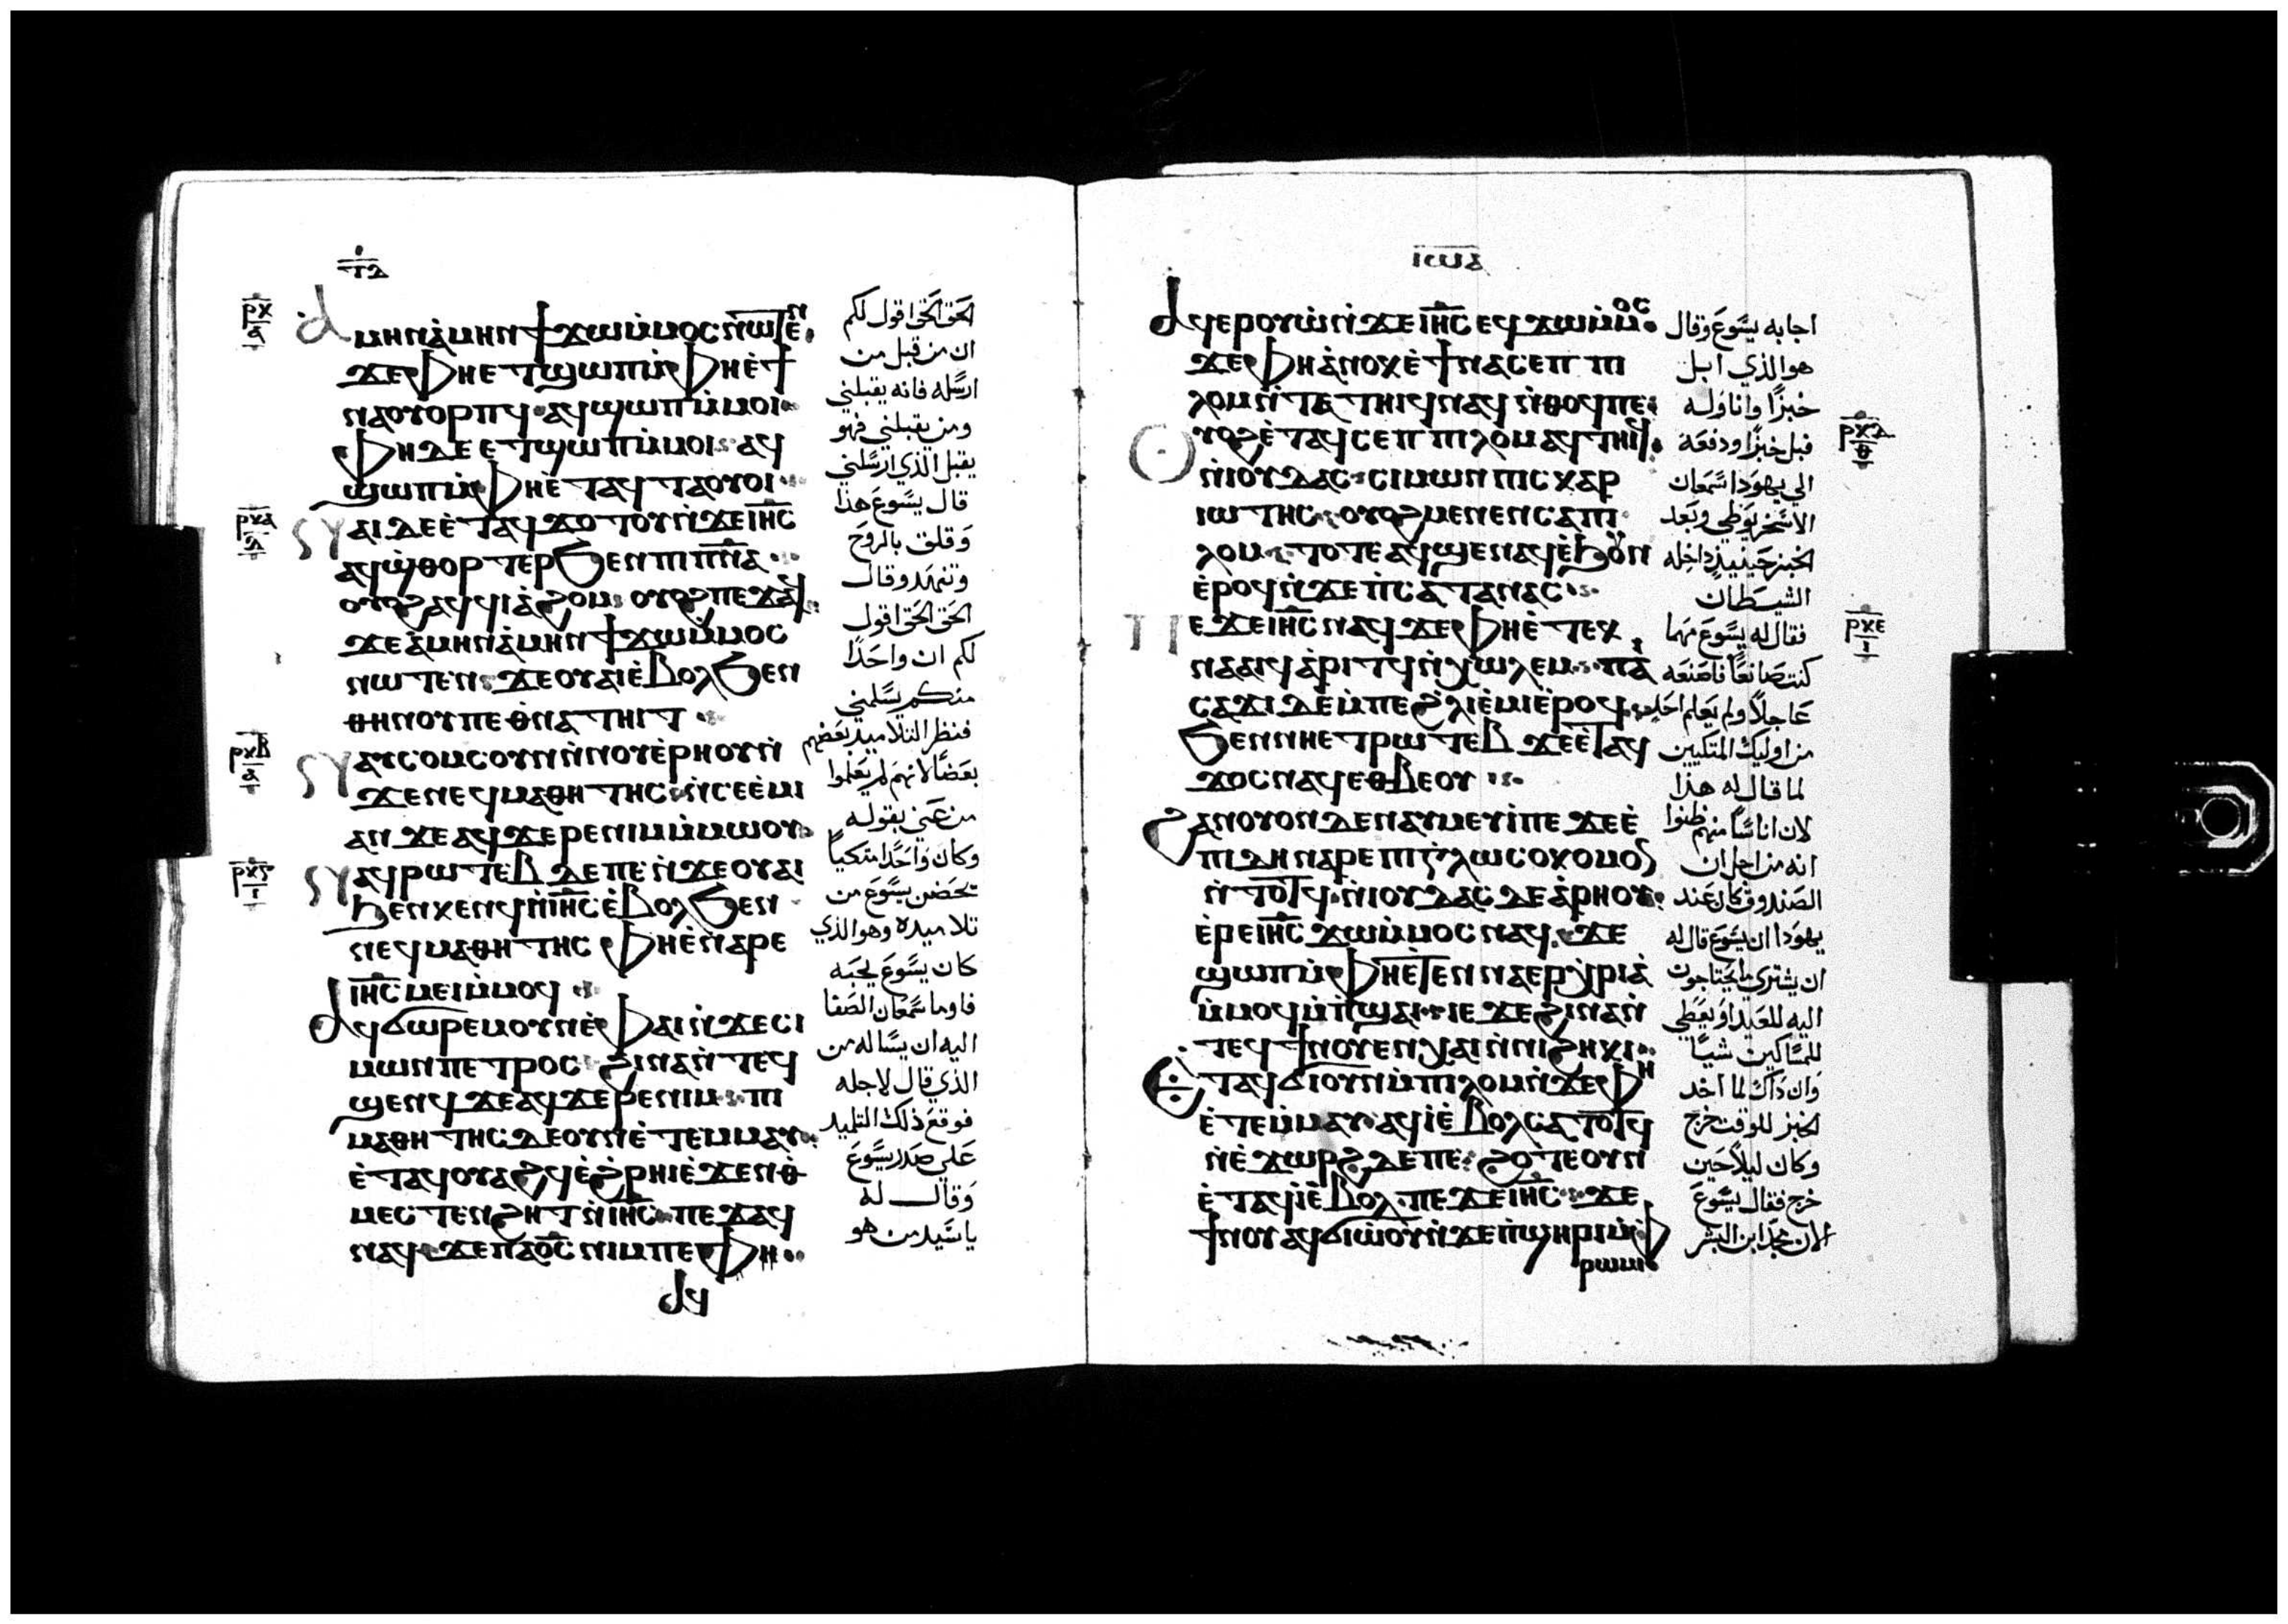 ⲧⲇ
ⲁⲙⲏⲛ ⲁ̀ⲙⲏⲛ ϯϫⲱ ⲙ̀ⲙⲟⲥ ⲛ̀ⲱⲧⲉⲛ
ϫⲉ ⲫⲏ ⲉⲧϣⲱⲡ ⲙ̀ⲫⲏ ⲉ̀ϯ
ⲛⲁⲟⲩⲟⲣⲡϥ ⲁϥϣⲱⲡ ⲙ̀ⲙⲟⲓ
ⲫⲏ ⲇⲉ ⲉⲧϣⲱⲡ ⲙ̀ⲙⲟⲓ ⲁϥ
ϣⲱⲡ ⲙ̀ⲫⲏ ⲉ̀ⲧⲁϥⲧⲁⲟⲩⲟⲓ
ⲛⲁⲓ ⲇⲉ ⲉ̀ⲧⲁϥϫⲟⲧⲟⲩ ⲛ̀ϫⲉ ⲓⲏⲥ
ⲁϥϣ̀ⲑⲟⲣⲧⲉⲣ ϧⲉⲛ ⲡⲓⲡⲛⲁ
ⲟⲩⲟϩ ⲁϥϥⲓⲁ̀ϩⲟⲙ ⲟⲩⲟϩ ⲡⲉϫⲁϥ
ϫⲉ ⲁ̀ⲙⲏⲛ ⲁ̀ⲙⲏⲛ ϯϫⲱ ⲙ̀ⲙⲟⲥ
ⲛⲱⲧⲉⲛ ϫⲉ ⲟⲩⲁⲓ ⲉ̀ⲃⲟⲗ ϧⲉⲛ
ⲑⲏⲛⲟⲩ ⲡⲉⲑⲛⲁⲧⲏⲓⲧ
ⲛⲁⲩⲥⲟⲙⲥ ⲟⲩⲛ ⲛ̀ⲛⲟⲩⲉ̀ⲣⲏⲟⲩ ⲛ̀
ϫⲉ ⲛⲉϥⲙⲁⲑⲏⲧⲏⲥ ⲛ̀ⲥⲉⲉ̀ⲙⲓ
ⲁⲛ ϫⲉ ⲁϥϫⲉⲣⲉ ⲛⲓⲙ ⲙ̀ⲙⲱⲟⲩ
ⲛⲁϥⲣⲱⲧⲉⲃ ⲇⲉ ⲡⲉ ⲛ̀ϫⲉ ⲟⲩⲁⲓ
ϧⲉⲛ ⲕⲉⲛϥ ⲛ̀ⲓⲏⲥ ⲉ̀ⲃⲟⲗ ϧⲉⲛ
ⲛⲉϥⲙⲁⲑⲏⲧⲏⲥ ⲫⲏ ⲉ̀ⲛⲁⲣⲉ
ⲓⲏⲥ ⲙⲉⲓ ⲙ̀ⲙⲟϥ
ⲁϥϭⲱⲣⲉⲙ ⲟⲩⲛ ⲉ̀ⲫⲁⲓ ⲛ̀ϫⲉ ⲥⲓ
ⲙⲱⲛ ⲡⲉⲧⲣⲟⲥ ϩⲓⲛⲁ ⲛ̀ⲧⲉϥ
ϣⲉⲛϥ ϫⲉ ⲁϥϫⲉⲣⲉ ⲛⲓⲙ ⲡⲓ
ⲙⲁⲑⲏⲧⲏⲥ ⲇⲉ ⲟⲩⲛ ⲉ̀ⲧⲉⲙⲙⲁⲩ
ⲉ̀ⲧⲁϥⲟⲩⲁϩϥ ⲉ̀ϩ̀ⲣⲏⲓ ⲉ̀ϫⲉⲛ ⲑ
ⲙⲉⲥⲧⲉⲛϩⲏⲧ ⲛ̀ⲓⲏⲥ ⲡⲉϫⲁϥ
ⲛⲁϥ ϫⲉ ⲡⲁⲟ̅ⲥ̅ ⲛⲓⲙ ⲡⲉ ⲫⲏ
ⲁϥ
ⲣⲕ
ⲣⲕⲁ
ⲣⲕⲃ
ⲣⲕⲅ
الحق الحق اقول لكم
ان من قبل من
ارسله فانه يقبلني
ومن يقبلني فهو
يقبل الذي ارسلني
قال يسوع هذا
وقلق بالروح
وتنهد وقال
الحق الحق اقول
لكم ان واحدًا
منكم يسلمني
فنظر التلاميد بعضهم
بعضًا لانهم لم يعلموا
من عني بقوله
وكان واحدًا متكيا
بحضن يسوع من
تلاميده وهو الذي
كان يسوع يحبه
فاوما سمعان الصفا
اليه ان يساله من
الذي قال لاجله
فوقع ذلك التلميد
علي صدر يسوع
وقال له
ياسيد من هو
ⲓⲱⲁ
ⲁϥⲉⲣⲟⲩⲱ̀ ⲛ̀ϫⲉ ⲓⲏⲥ ⲉϥϫⲱ ⲙ̀ⲙⲟⲥ
ϫⲉ ⲫⲏ ⲁ̀ⲛⲟⲕ ⲉ̀ϯⲛⲁⲥⲉⲡ ⲡⲓ
ⲗⲱⲙ ⲛ̀ⲧⲁⲧⲏⲓϥ ⲛⲁϥ ⲛ̀ⲑⲟϥ ⲡⲉ
ⲟⲩⲟϩ ⲉ̀ⲧⲁϥⲥⲉⲡ ⲡⲓⲗⲱⲙ ⲁϥⲧⲏⲓϥ
ⲛ̀ⲓⲟⲩⲇⲁⲥ ⲥⲓⲙⲱⲛ ⲡⲓⲥⲕⲁⲣ
ⲓⲱⲧⲏⲥ ⲟⲩⲟϩ ⲙⲉⲛⲉⲛⲥⲁ ⲡⲓ
ⲗⲱⲙ ⲧⲟⲧⲉ ⲁϥϣⲉⲛⲁϥ ⲉ̀ϧⲟⲩⲛ
ⲉ̀ⲣⲟϥ ⲛ̀ϫⲉ ⲡ̀ⲥⲁⲧⲁⲛⲁⲥ
ⲡⲉϫⲉ ⲓⲏⲥ ⲛⲁϥ ϫⲉ ⲫⲏ ⲉ̀ⲧⲉⲕ
ⲛⲁⲁⲓϥ ⲁ̀ⲣⲓⲧϥ ⲛ̀ⲭⲱⲗⲉⲙ ⲡⲁⲓ
ⲥⲁϫⲓ ⲇⲉ ⲙ̀ⲡⲉ ϩ̀ⲗⲓ ⲉ̀ⲙⲓ ⲉ̀ⲣⲟϥ
ϧⲉⲛ ⲛⲏ ⲉⲧⲣⲱⲧⲉⲃ ϫⲉ ⲉ̀ⲧⲁϥ
ϫⲟⲥ ⲛⲁϥ ⲉⲑⲃⲉ ⲟⲩ
ϩⲁⲛⲟⲩⲟⲛ ⲇⲉ ⲛⲁⲩⲙⲉⲩⲓ̀ ⲡⲉ ϫⲉ ⲉ̀
ⲡⲓⲇⲏ ⲛⲁⲣⲉ ⲡⲓⲅ̀ⲗⲱⲥⲟⲕⲟⲙⲟⲥ
ⲛ̀ⲧⲟⲧϥ ⲛ̀ⲓⲟⲩⲇⲁⲥ ⲇⲉ ⲁ̀ⲣⲏⲟⲩ
ⲉ̀ⲣⲉ ⲓⲏⲥ ϫⲱ ⲙ̀ⲙⲟⲥ ⲛⲁϥ ϫⲉ
ϣⲱⲡ ⲙ̀ⲫⲏ ⲉ̀ⲧⲉⲛⲛⲁⲉⲣⲭ̀ⲣⲓⲁ
ⲙ̀ⲙⲟϥ ⲙ̀ⲡ̀ϣⲁⲓ ⲓⲉ ϫⲉ ϩⲓⲛⲁ ⲛ̀
ⲧⲉϥϯ ⲛⲟⲩⲉⲛⲭⲁⲓ ⲛ̀ⲛⲓϩⲏⲕⲓ
ⲉⲧⲁϥϭⲓ ⲟⲩⲛ ⲙ̀ⲡⲓⲗⲱⲙ ⲛ̀ϫⲉ ⲫⲏ
ⲉ̀ⲧⲉⲙ̀ⲙⲁⲩ ⲁϥⲓ̀ ⲉ̀ⲃⲟⲗ ⲥⲁⲧⲟⲧϥ
ⲛⲉ ⲉ̀ϫⲱⲣϩ ⲇⲉ ⲡⲉ ϩⲟ̀ⲧⲉ ⲟⲩⲛ
ⲉ̀ⲧⲁϥⲓ̀ ⲉ̀ⲃⲟⲗ ⲡⲉϫⲉ ⲓⲏⲥ ϫⲉ
ϯⲛⲟⲩ ⲁϥϭⲓⲱ̀ⲟⲩ ⲛ̀ϫⲉ ⲡ̀ϣⲏⲣⲓ ⲙ̀ⲫ
ⲣⲱⲙⲓ
اجابه يسوع وقال
هو الذي ابل
خبزًا واناوله
فبل خبزًا ودفعه
الي يهودا سمعان
الاسخريوطي وبعد
الخبز حينيدٍ داخله
الشيطان
فقال له يسوع مهما
كنت صانعًا فاصنعه
عاجلاً ولم يعلم احد
من اوليك المتكيين
لما قال له هذا
لان اناسًا منهم ظنوا
انه من اجل ان
الصندوق كان عند
يهودا ان يسوع قال له
ان يشتري ما يحتاجون
اليه للعيد او يعطي
للمساكين شيا
وان داك لما اخد
الخبز للوقت خرج
وكان ليلاً حين
خرج فقال يسوع
الان مجد ابن البشر
ⲣⲕⲇ
ⲣⲕⲉ